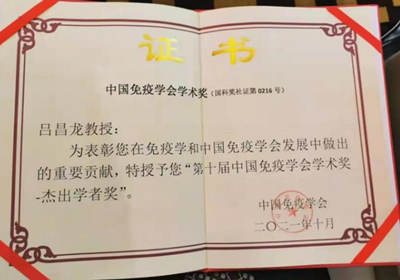 证书
中国免疫学会学术奖（国科奖社证第0216号）
吕昌龙教授：
为表彰您在免疫学和中国免疫学会发展中做出
的重要贡献，特授予您“第十届中国免疫学会学术奖
-杰出学者奖”。
中国免疫学会
二〇二一年十月